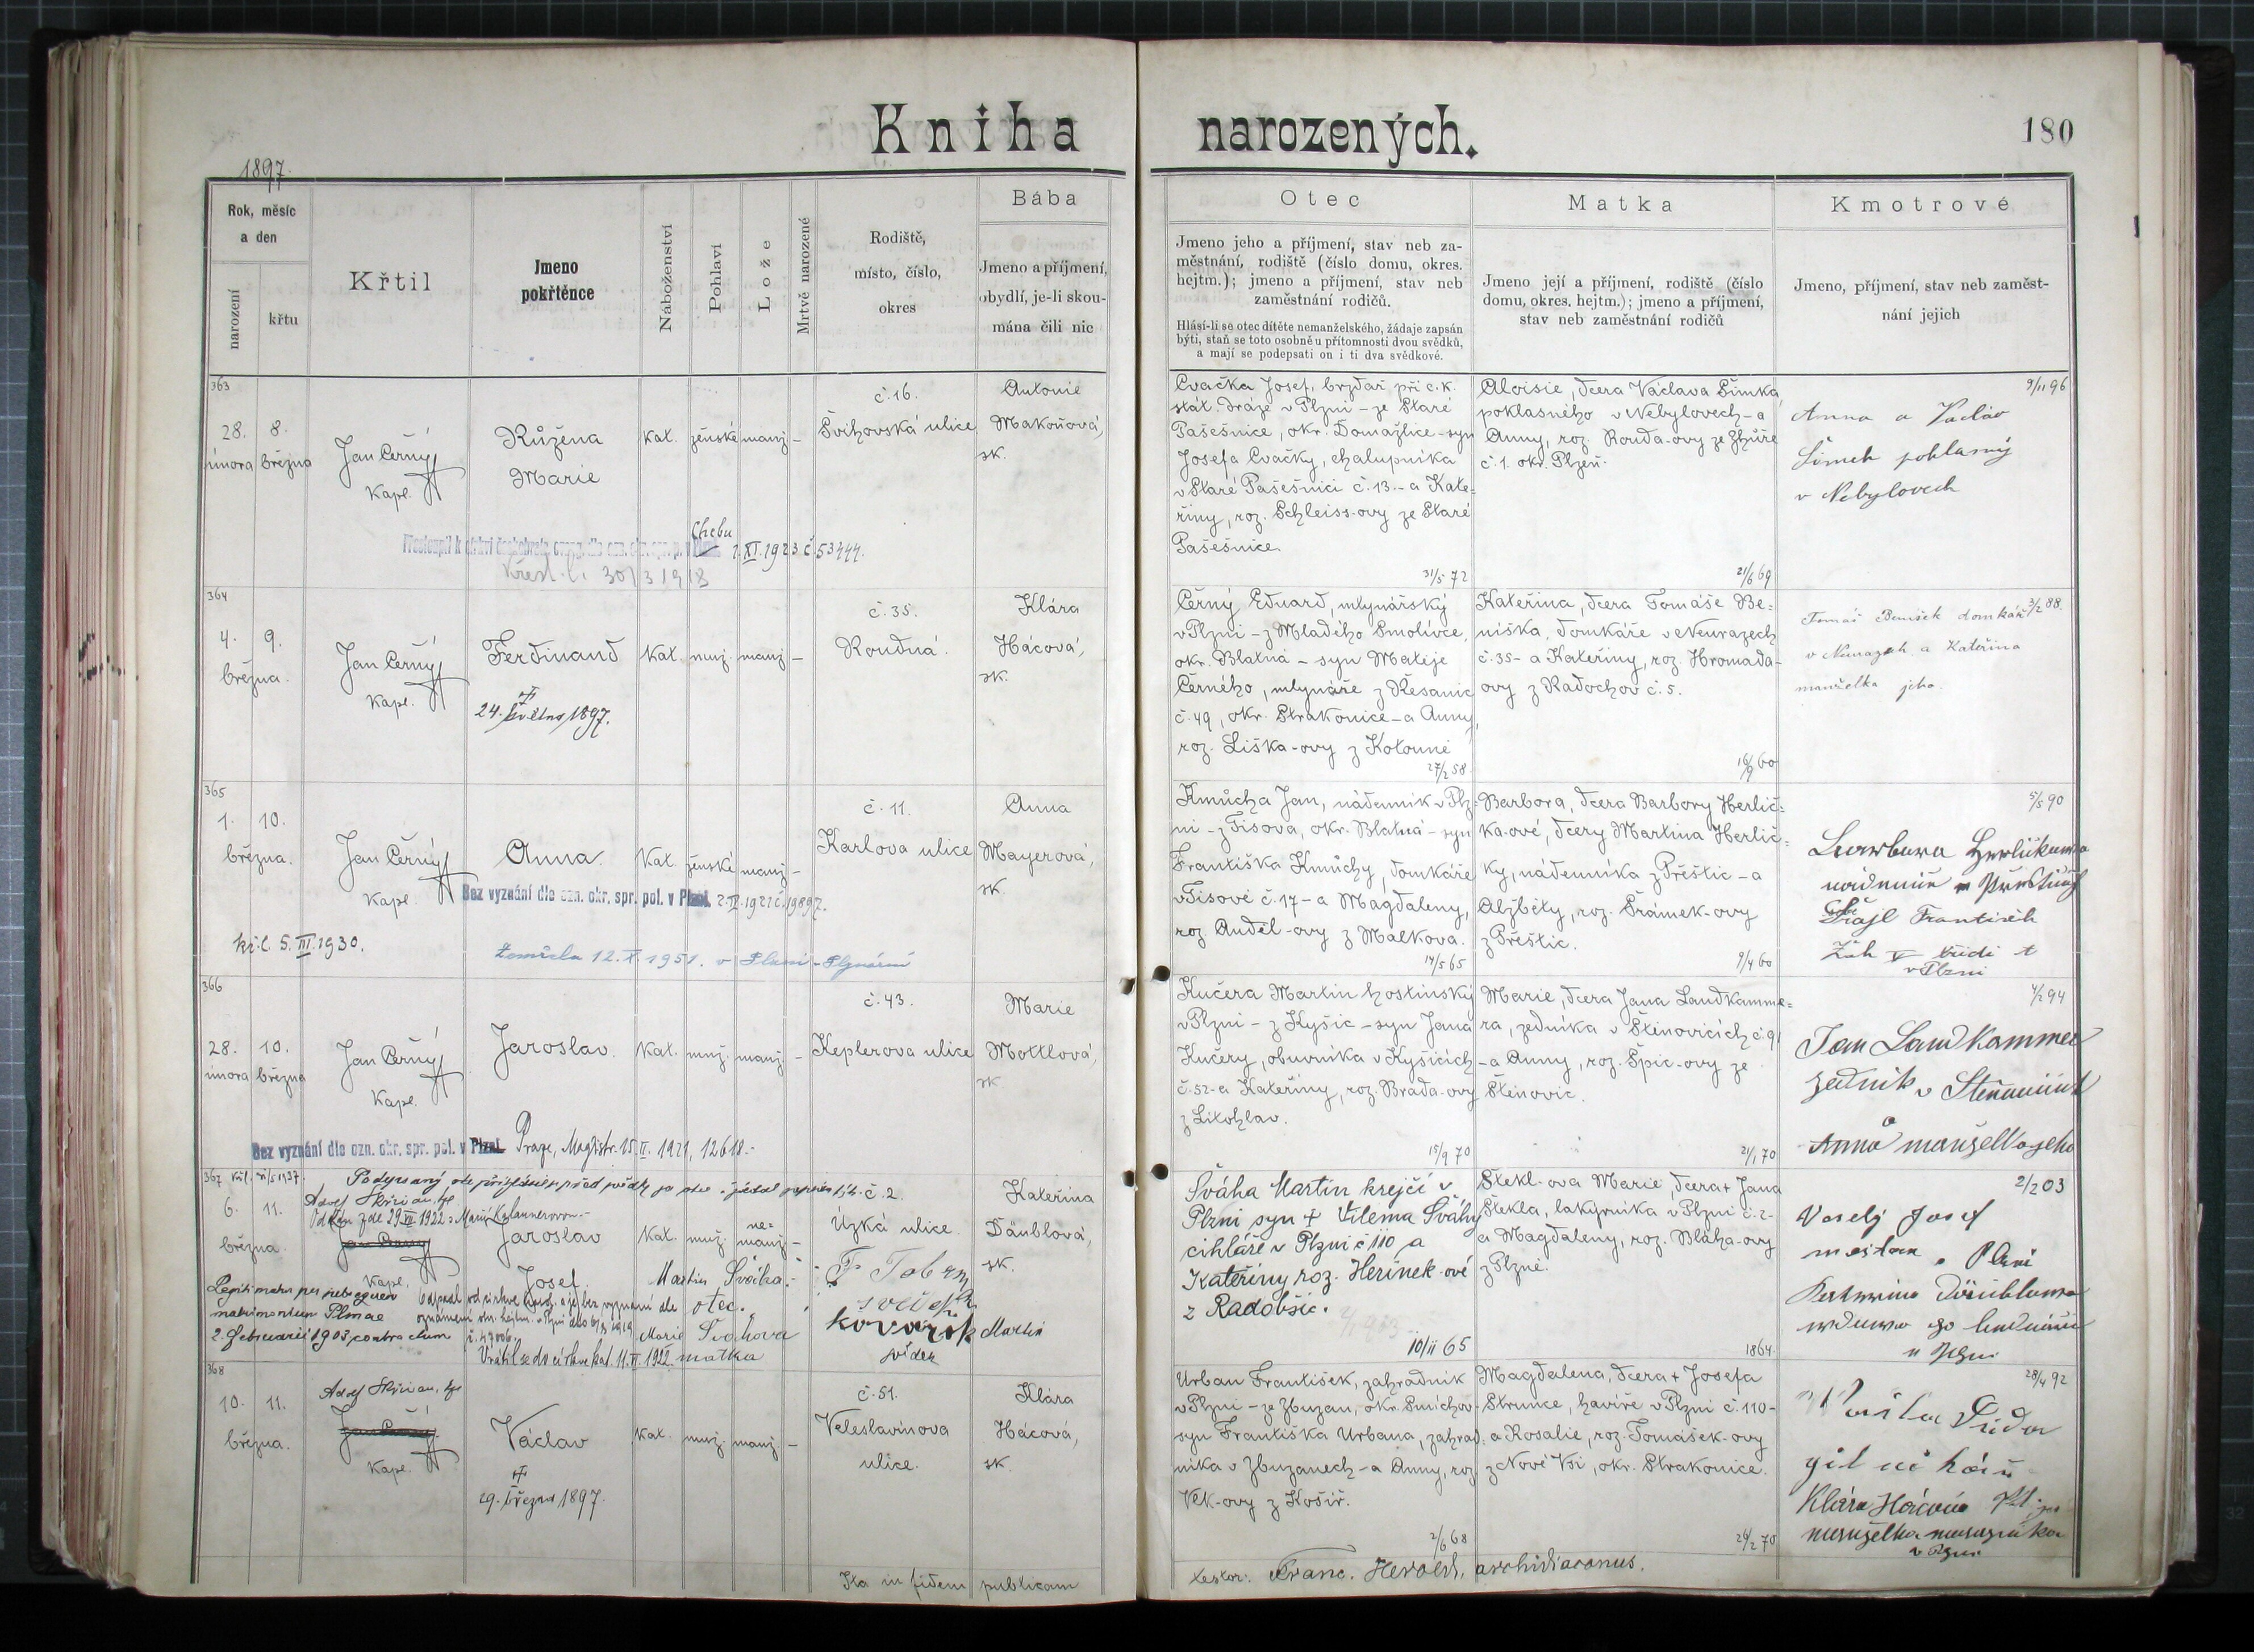 Kniha narozených.
180
1897.
Rok, měsíc
a den
narození
křtu
Křtil
Jmeno
pokřtěnce
Náboženství
Pohlaví
Lože
Mrtvě narozené
Rodiště,
místo, číslo,
okres
Bába
Jmeno a příjmení,
obydlí, je-li skou-
mána čili nic
Otec
Jmeno jeho a příjmení, stav neb za-
městnání, rodiště (číslo domu, okres.
hejtm.); jmeno a příjmení, stav neb
zaměstnání rodičů.
Hlásí-li se otec dítěte nemanželského, žádaje zapsán
býti, staň se toto osobně u přítomnosti dvou svědků,
a mají se podepsati on i ti dva svědkové.
Matka
Jmeno její a příjmení, rodiště (číslo
domu, okres. hejtm.); jmeno a příjmení,
stav neb zaměstnání rodičů
Kmotrové
Jmeno, příjmení, stav neb zaměst-
nání jejich
363
28. února
8. března
Jan Černý
Kapl.
Růžena
Marie
Kat. ženské manž. –
č. 16.
Švihovská ulice
Antonie
Makoňová,
sk.
Chebu
2. XI. 1923 č. 53444.
Křest. l. 30/3 1918
Cvačka Josef, brzdař při c. k.
stát. dráze v Plzni – ze Staré
Pašešnice, okr. Domažlice – syn
Josefa Cvačky, chalupníka
v Staré Pašešnici č. 13. – a Kate=
řiny, roz. Schleiss-ovy ze Staré
Pašešnice.
31/5 72
Aloisie, dcera Václava Šimka,
poklasného v Nebylovech – a
Anny, roz. Rouda-ovy ze Zhůře
č. 1. okr. Plzeň.
21/6 69
9/11 96
Anna a Václav
Šimek poklasný
v Nebylovech
364
4. 9.
března.
Jan Černý
Kapl.
Ferdinand
24. května 1897.
Kat. muž. manž. –
č. 35.
Roudná.
Klára
Hácová,
sk.
Černý Eduard, mlynářský
v Plzni – z Mladého Smolivce,
okr. Blatná – syn Matěje
Černého, mlynáře z Řesanic
č. 49, okr. Strakonice – a Anny,
roz. Liška-ovy z Kotouně
27/2 58
Kateřina, dcera Tomáše Be=
níška, domkáře v Neurazech
č. 35 – a Kateřiny, roz. Hromada-
ovy z Radochov č. 5.
16/9 60
3/2 88.
Tomáš Beníšek domkář
v Neurazech a Kateřina
manželka jeho
365
1. 10.
března.
Jan Černý
Kapl.
Anna
Kat. ženské manž. –
č. 11.
Karlova ulice
Anna
Mayerová,
sk.
Bez vyznání dle ozn. okr. spr. pol. v Plzni. 2. II. 1921 č. 19897.
kř. l. 5. III. 1930.
Zemřela 12. X. 1951. v Plzni
Kmůcha Jan, nádenník v Plz=
ni – z Tisova, okr. Blatná – syn
Františka Kmůchy, domkáře
v Tisové č. 17 – a Magdaleny,
roz. Anděl-ovy z Malkova.
14/5 65
Barbora, dcera Barbory Herlič=
ka-ové, dcery Martina Herlič=
ky, nádenníka z Přeštic – a
Alžběty, roz. Šrámek-ovy
z Přeštic.
9/4 60
5/5 90
František
v Plzni
366
28. února
10. března
Jan Černý
Kapl.
Jaroslav.
Kat. muž. manž. –
č. 43.
Keplerova ulice
Marie
Mottlová,
sk.
Bez vyznání dle ozn. okr. spr. pol. v Plzni. Praze, Magistr. 15. II. 1921, 12618.–
Kučera Martin hostinský
v Plzni – z Kyšic – syn Jana
Kučery, obuvníka v Kyšicích
č. 52 – a Kateřiny, roz. Brada-ovy
z Litohlav.
15/9 70
Marie, dcera Jana Landkamme=
ra, zedníka v Štěnovicích č. 91
– a Anny, roz. Špic-ovy ze
Štěnovic.
21/1 70
4/2 94
Jan Landkammer
zedník v
Anna manželka jeho
367
6. 11.
března
Adolf
Jan Černý
Kapl.
Jaroslav
Josef
Kat. muž. ne=
manž. –
č. 2.
Úzká ulice
Kateřina
Däublová,
sk.
Martin Šváha.
otec.
Marie Šváhová
matka
Kovařík Martin
svědek
matrimonium Plznae
2. februarii 1903 contractum
Vrátil se do církve kat. 11. VI. 1922
Šváha Martin krejčí v
Plzni syn † Viléma Šváhy
cihláře v Plzni č 110 a
Kateřiny roz. Heřinek-ové
z Radobšic.
10/11 65
Štekl-ova Marie, dcera † Jana
Štekla, lakýrníka v Plzni č. 2-
a Magdaleny, roz. Bláha-ovy
z Plzně.
1864
2/2 03
Veselý Josef
368
10. 11.
března.
Adolf
Jan Černý
Kapl.
Václav
29. března 1897.
Kat. muž. manž. –
č. 51.
Veleslavínova
ulice.
Klára
Hácová,
sk.
Urban František, zahradník
v Plzni – ze Zbuzan, okr. Smíchov –
syn Františka Urbana, zahrad=
níka v Zbuzanech – a Anny, roz.
Vlk-ovy z Košíř.
2/6 68
Magdalena, dcera † Josefa
Strunce, havíře v Plzni č. 110 –
a Rosalie, roz. Tomášek-ovy
z Nové Vsi, okr. Strakonice.
24/2 70
28/4 92
Klára Hácová
manželka
v Plzni
Ita in fidem publicam
testor: Franc. Herold, archidiaconus.